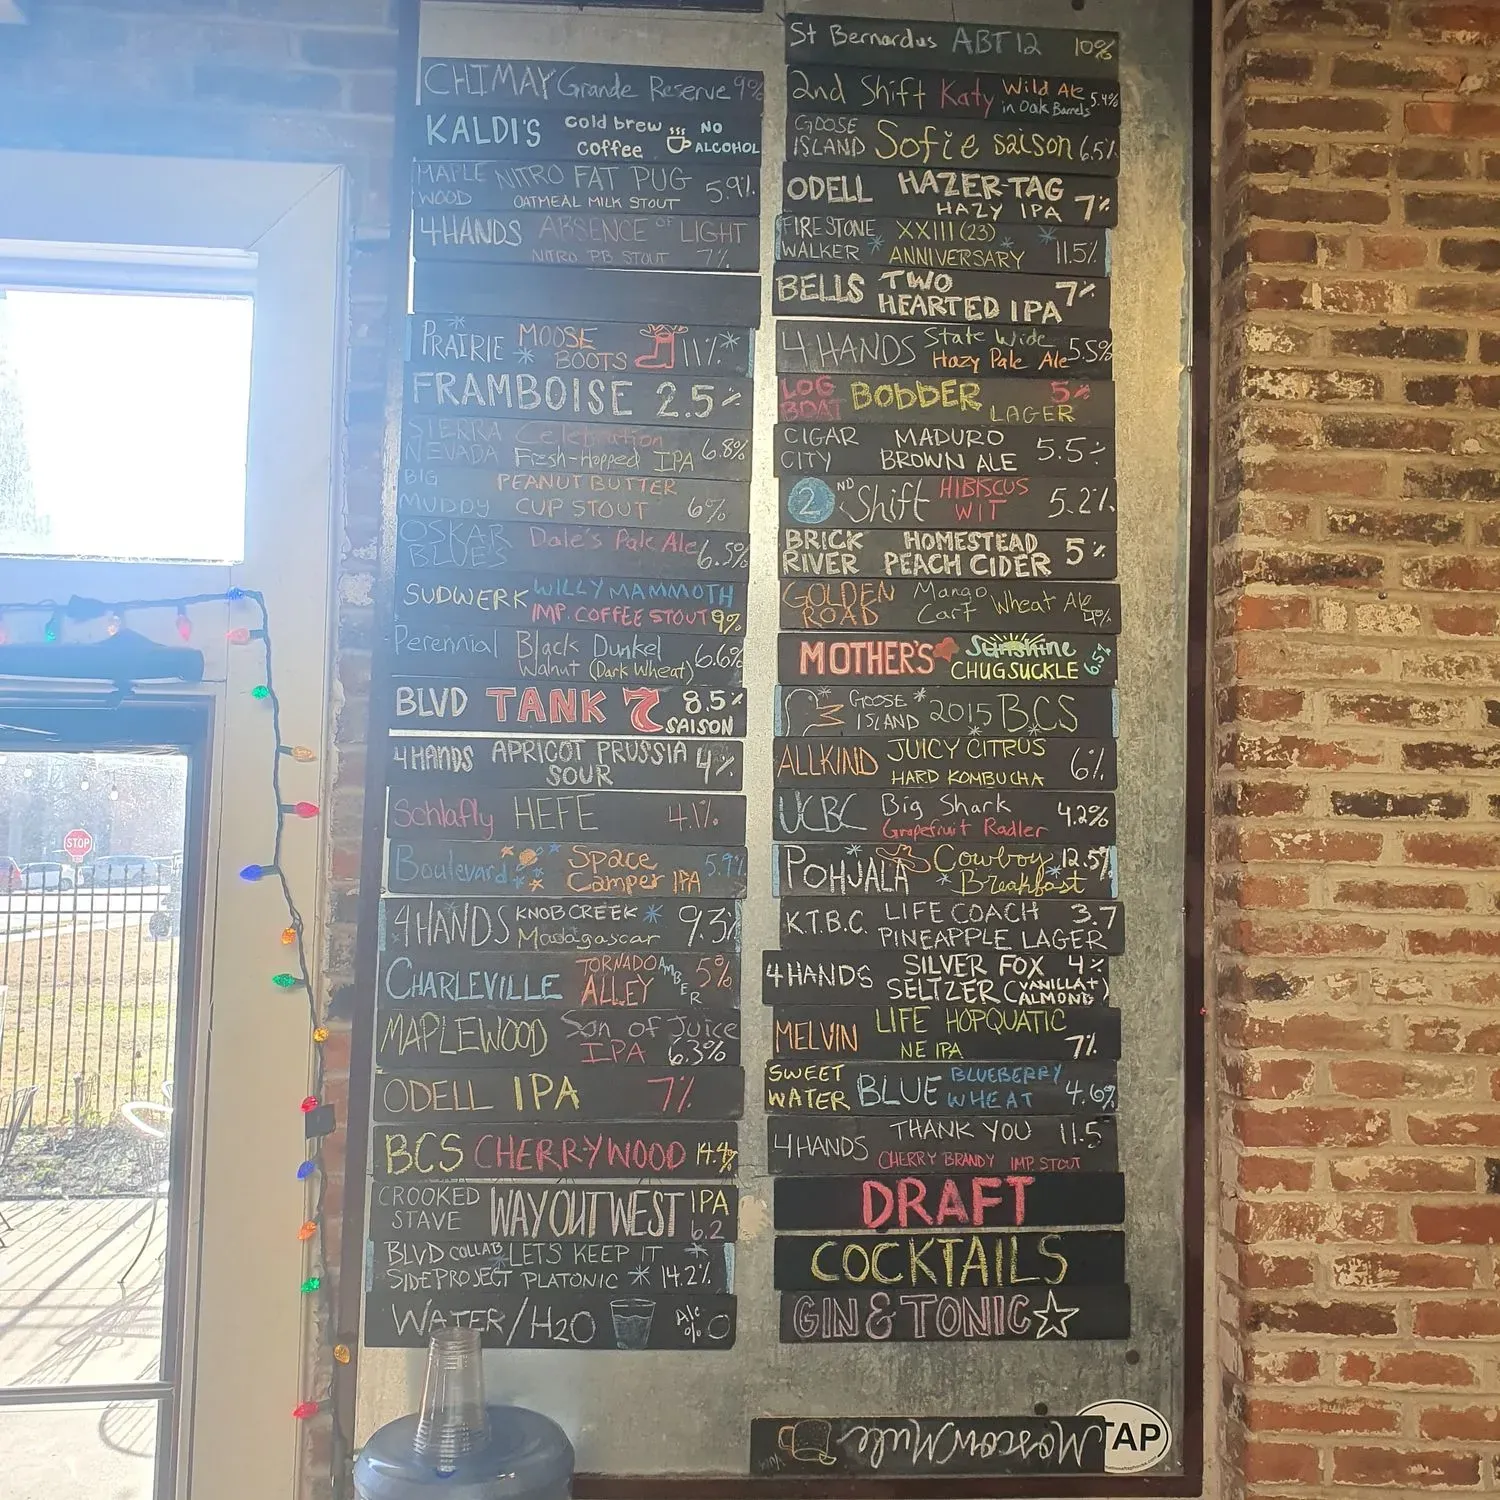 CHIMAY Grande Reserve 9%
KALDI'S cold brew coffee NO ALCOHOL
MAPLE WOOD NITRO FAT PUG 5.9%
OATMEAL MILK STOUT
4HANDS ABSENCE OF LIGHT
NITRO PB STOUT 7%
PRAIRIE MOOSE BOOTS 11%
FRAMBOISE 2.5%
SIERRA NEVADA Celebration 6.8%
Fresh-Hopped IPA
BIG MUDDY PEANUT BUTTER
CUP STOUT 6%
OSKAR BLUES Dale's Pale Ale 6.5%
SUDWERK WILLY MAMMOTH
IMP. COFFEE STOUT 9%
Perennial Black Dunkel 6.6%
Walnut (Dark Wheat)
BLVD TANK 7 8.5%
SAISON
4HANDS APRICOT PRUSSIA 4%
SOUR
Schlafly HEFE 4.1%
Boulevard Space 5.9%
Camper IPA
4HANDS KNOB CREEK 9.3%
Madagascar
CHARLEVILLE TORNADO ALLEY AMBER 5%
MAPLEWOOD Son of Juice
IPA 6.3%
ODELL IPA 7%
BCS CHERRYWOOD 14.4%
CROOKED STAVE WAY OUT WEST IPA 6.2
BLVD COLLAB LETS KEEP IT
SIDE PROJECT PLATONIC 14.2%
WATER/H2O Alc % 0
St Bernardus ABT 12 10%
2nd Shift Katy Wild Ale 5.4%
in Oak Barrels
GOOSE ISLAND Sofie saison 6.5%
ODELL HAZER-TAG
HAZY IPA 7%
FIRESTONE WALKER XXIII (23)
ANNIVERSARY 11.5%
BELLS TWO HEARTED IPA 7%
4 HANDS State Wide 5.5%
Hazy Pale Ale
LOG BOAT BOBBER 5%
LAGER
CIGAR CITY MADURO
BROWN ALE 5.5%
2ND Shift HIBISCUS WIT 5.2%
BRICK RIVER HOMESTEAD
PEACH CIDER 5%
GOLDEN ROAD Mango Cart Wheat Ale 4%
MOTHER'S Sunshine
CHUGSUCKLE 6.5%
GOOSE ISLAND 2015 BCS
ALLKIND JUICY CITRUS
HARD KOMBUCHA 6%
UCBC Big Shark 4.2%
Grapefruit Radler
POHJALA Cowboy 12.5%
Breakfast
K.T.B.C. LIFE COACH 3.7
PINEAPPLE LAGER
4HANDS SILVER FOX 4%
SELTZER (VANILLA + ALMOND)
MELVIN LIFE HOPQUATIC
NE IPA 7%
SWEET WATER BLUE BLUEBERRY
WHEAT 4.6%
4HANDS THANK YOU 11.5
CHERRY BRANDY IMP STOUT
DRAFT
COCKTAILS
GIN & TONIC
Moscow Mule
TAP
STOP